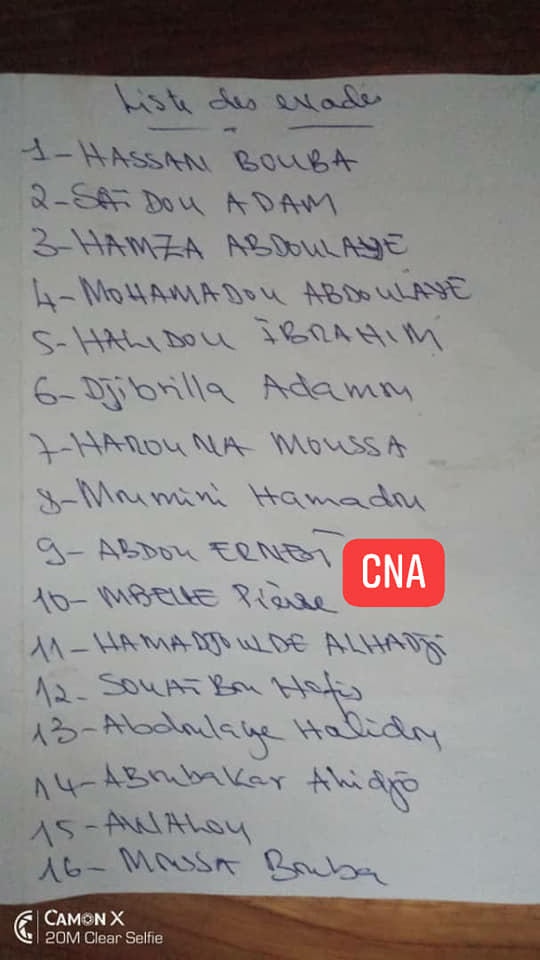 Liste des evadés
1-HASSAN BOUBA
2-SAÏDOU ADAM
3-HAMZA ABDOULAYE
4-MOHAMADOU ABDOULAYE
5-HALIDOU IBRAHIM
6-Djibrilla Adamou
7-HAROUNA MOUSSA
8-Moumini Hamadou
9-ABDOU ERNEST
CNA
10-MBELLE Pièrre
11-HAMADJOULDE ALHADji
12-SOUAÏBOU Hafis
13-Abdoulaye Halidou
14-ABoubakar Ahidjō
15-AWALOU
16-MoussA Bouba
CAMON X
20M Clear Selfie